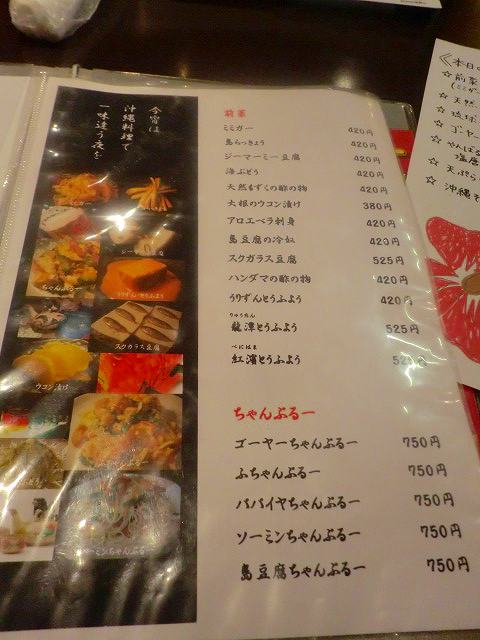 今宵は
沖縄料理で
一味違う夜を
ちゃんぷるー
うりずんとうふよう
スクガラス豆腐
ウコン漬け
ソーミンちゃんぷる
前菜
ミミガー 420円
島らっきょう 420円
ジーマーミー豆腐 420円
海ぶどう 420円
天然もずくの酢の物 420円
大根のウコン漬け 380円
アロエベラ刺身 420円
島豆腐の冷奴 420円
スクガラス豆腐 525円
ハンダマの酢の物 420円
うりずんとうふよう 420円
りゅうたん
龍潭とうふよう 525円
べにはま
紅濱とうふよう
ちゃんぷるー
ゴーヤーちゃんぷるー 750円
ふちゃんぷるー 750円
パパイヤちゃんぷるー 750円
ソーミンちゃんぷるー 750円
島豆腐ちゃんぷるー 750円
《本日の
☆ 前菜
(ミミガー
☆ 天然
☆ 琉球
☆ ゴーヤ
☆ やんばる
塩
☆ 天ぷら
☆ 沖縄そ